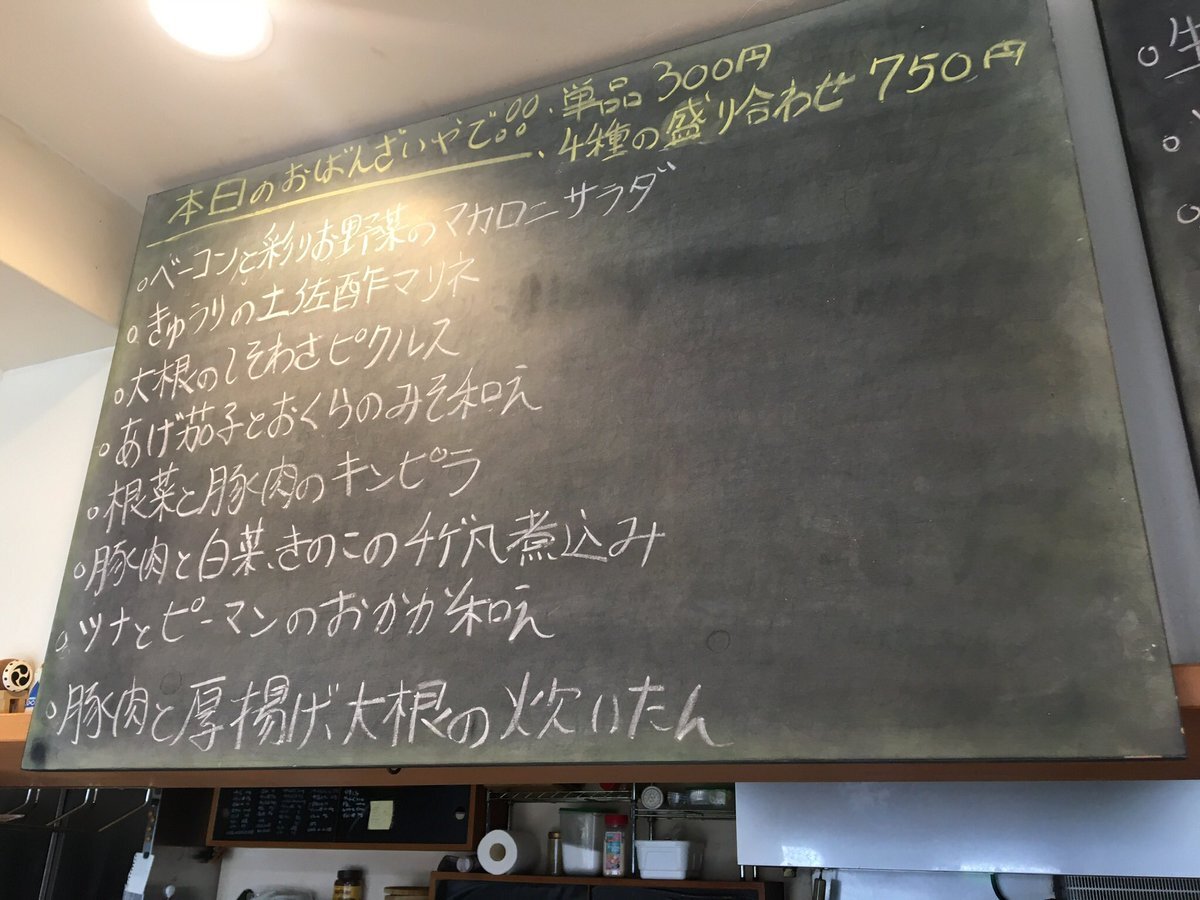 本日のおばんざいやで!!
・単品 300円
・4種の盛り合わせ 750円
○ベーコンと彩りお野菜のマカロニサラダ
○きゅうりの土佐酢マリネ
○大根のしそわさピクルス
○あげ茄子とおくらのみそ和え
○根菜と豚肉のキンピラ
○豚肉と白菜、きのこのチゲ風煮込み
○ツナとピーマンのおかか和え
○豚肉と厚揚げ、大根の炊いたん
○生